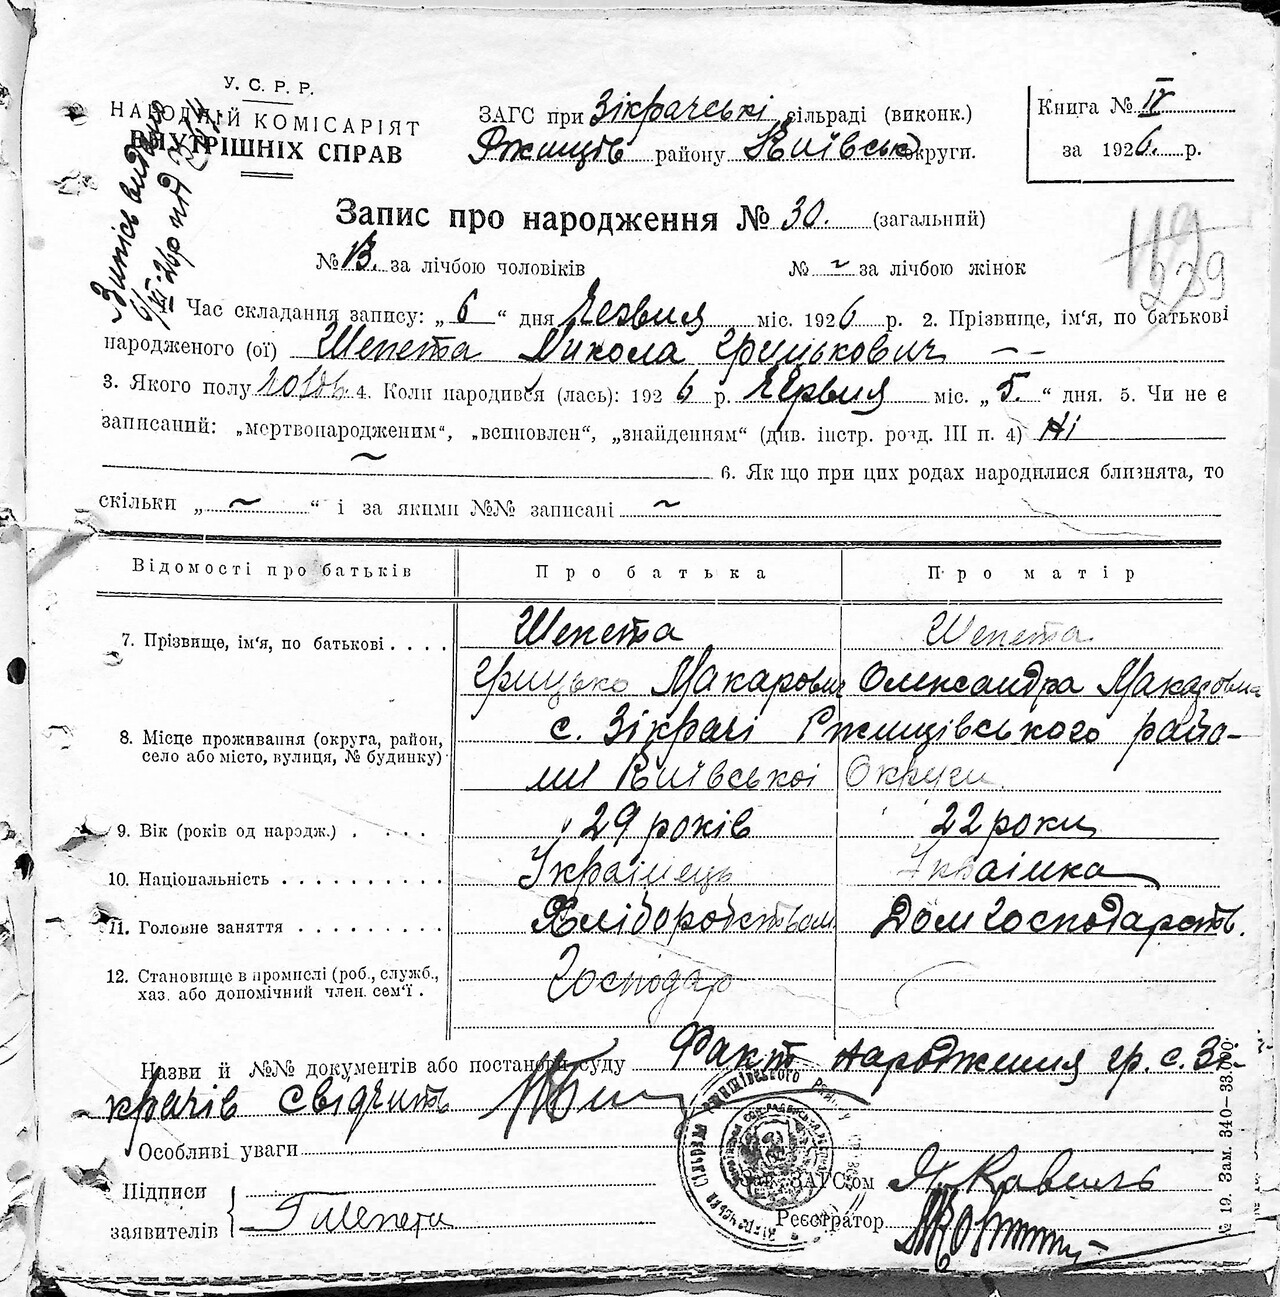 У. С. Р. Р.
НАРОДНІЙ КОМІСАРІЯТ
ВНУТРІШНІХ СПРАВ
ЗАГС при Зікрачські сільраді (виконк.)
Ржищів району Київськ округи.
Книга № IV
за 1926. р.
Запис про народження № 30. (загальний)
№ 13. за лічбою чоловіків № ~ за лічбою жінок
119
229
1. Час складання запису: „ 6 “ дня Червня міс. 1926 р. 2. Прізвище, ім'я, по батькові
народженого (ої) Шепета Микола Грицькович — —
3. Якого полу 4. Коли народився (лась): 1926 р. Червня міс. „ 5. “ дня. 5. Чи не є
записаний: „мертвонародженим“, „всиновлен“, „знайденням“ (див. інстр. розд. III п. 4) Ні
~ 6. Як що при цих родах народилися близнята, то
скільки „ ~ “ і за якими №№ записані ~
Відомості про батьків Про батька Про матір
7. Прізвище, ім'я, по батькові . . . . Шепета Шепета
Грицько Макарович Олександра Макаровна
8. Місце проживання (округа, район, с. Зікрачі Ржищівського райо-
село або місто, вулиця, № будинку) ни Київської Округи.
9. Вік (років од народж.) . . . . 29 років 22 роки
10. Національність . . . . . . . . . . Українець Українка
11. Головне заняття . . . . . . . . . Хліборобством Дом господарств.
12. Становище в промислі (роб., служб.,
хаз. або допомічний член. сем'ї . Господар
Назви й №№ документів або постанови суду Факт народження гр. с. Зі-
крачів свідчить
Особливі уваги
Підписи
заявителів Г Шепета
Зав. ЗАГС'ом
Реєстратор
№ 19. Зам. 340—33.000